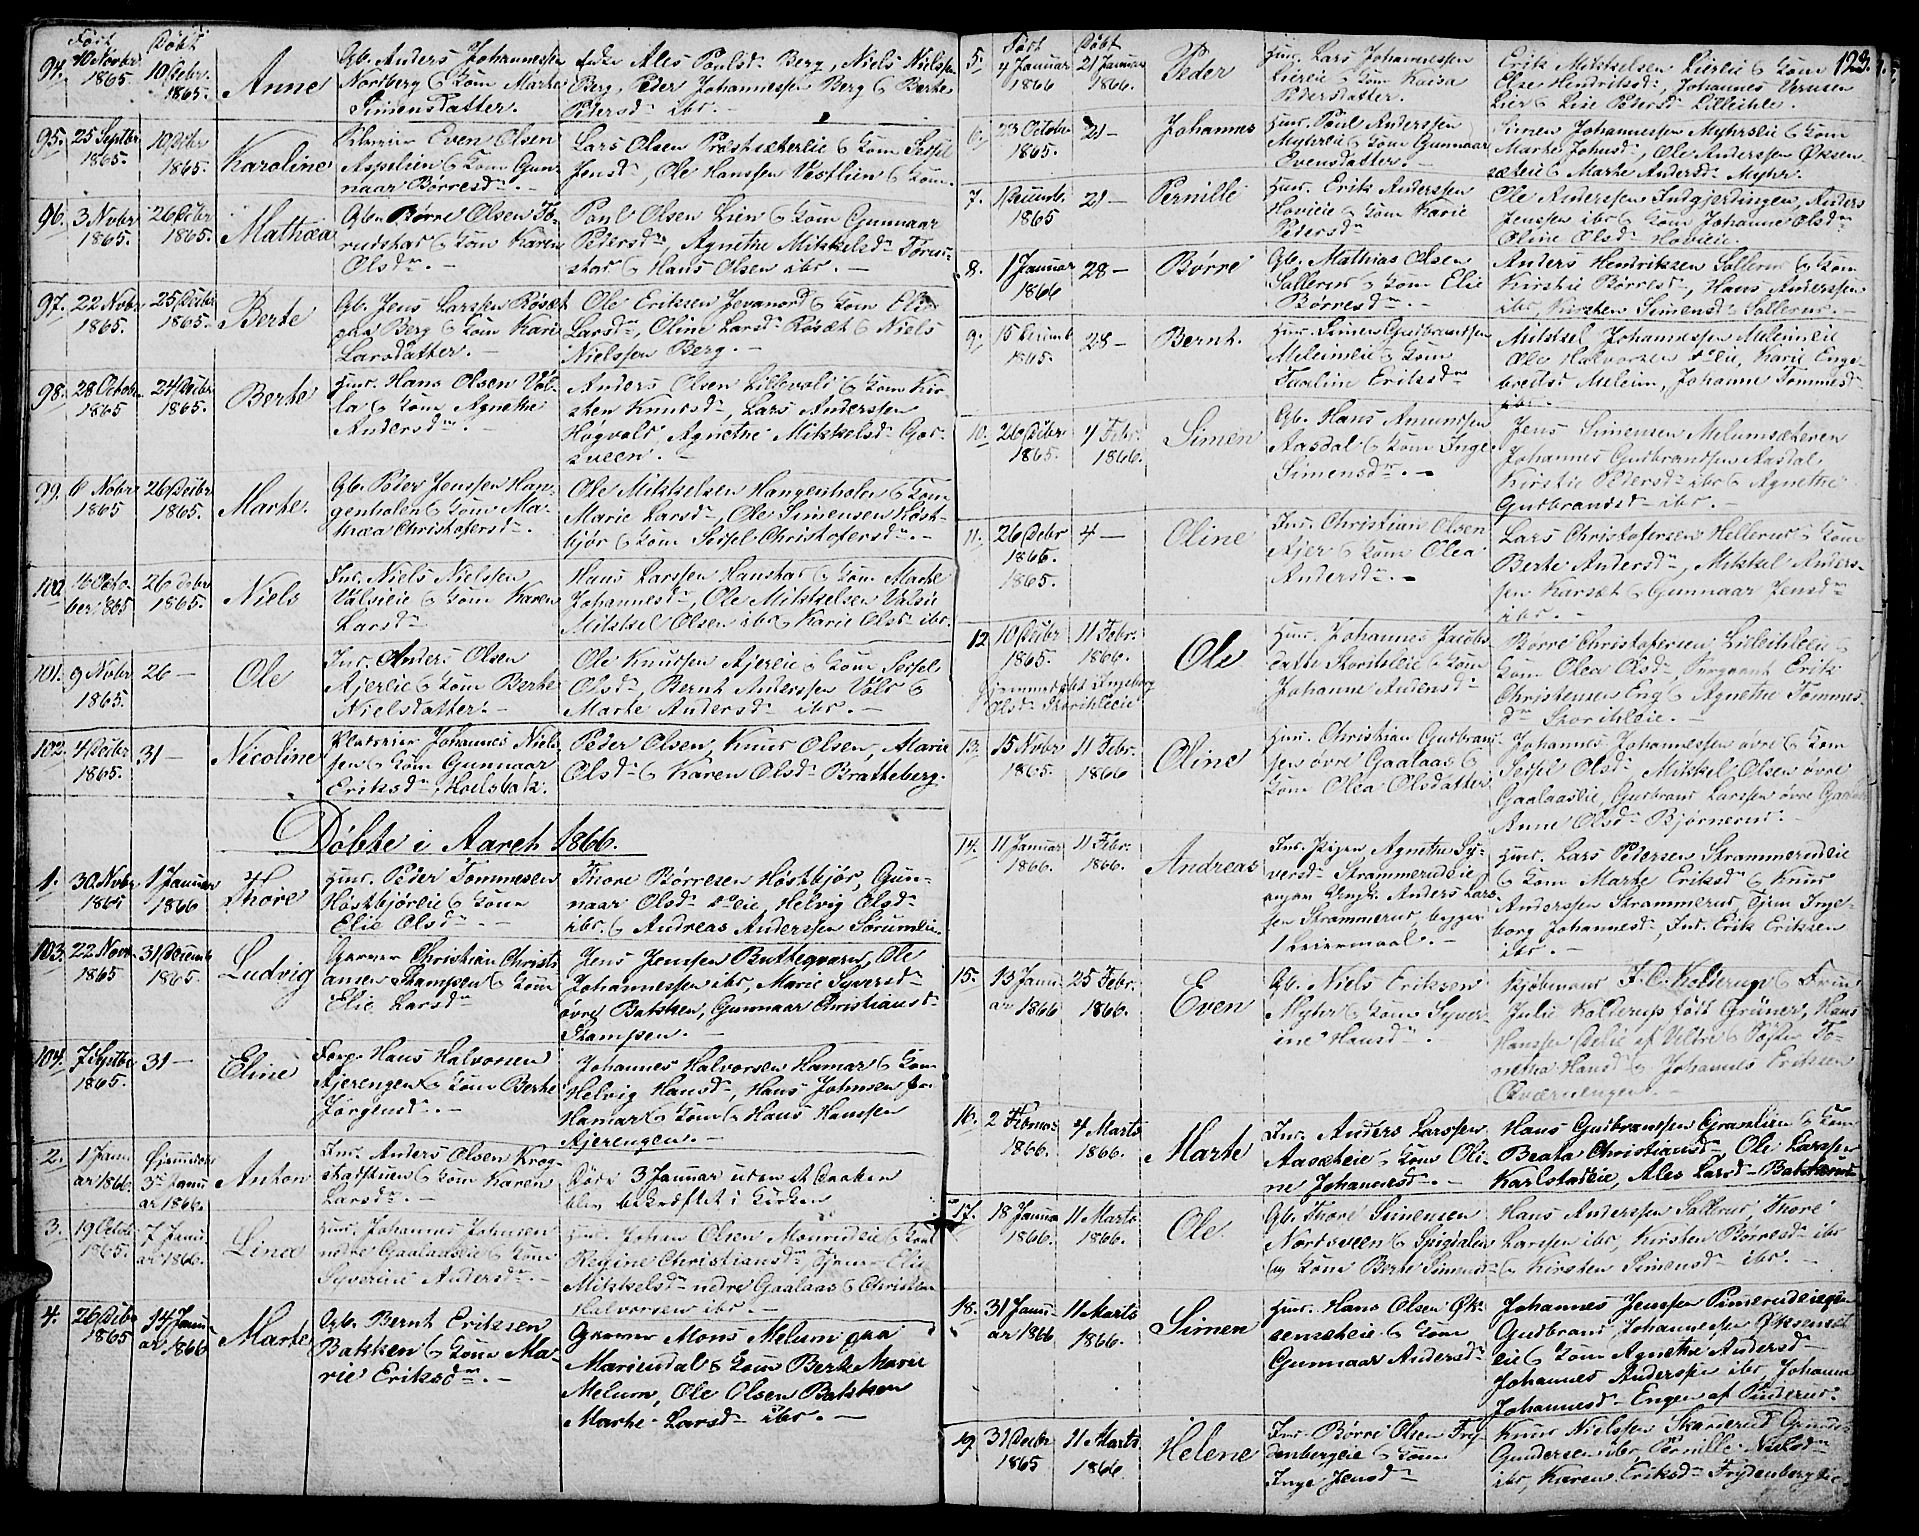 Født Døbt
94. 10 Novbr 1865. 10 Debr. 1865. Anne
Gb. Anders Johannessen
Nordberg & Kone Marthe
Simensdatter.
Enke Ales Poulsd. Berg, Niels Nielssen
Berg, Peder Johannessen Berg & Berthe
Pedersd. ibr.
95. 25 Septbr 1865. 10 Debr 1865. Karoline
Even Olsen
& Kone Gun-
naar Børresd. –
Lars Olsen Præstsæterie & Kone Sessel
Jensd., Ole Hanssen Vestlien & Kone.
96. 3 Novbr 1865. 26 Debr 1865. Mathea
Gb. Børre Olsen To-
rudstad & Kone Karen
Olsdr. –
Poul Olsen Lien & Kone Gunnaar
Petersdr, Agnethe Mikkelsdr
stad & Hans Olsen ibr. –
97. 22 Novbr 1865. 25 Debr 1865. Berte
Gb. Jens Larssen Røsæt
paa Berg & Kone Karie
Larsdatter. –
Ole Eriksen Jevanord & Kone Elie
Larsdr, Oline Larsdr Røsæt & Niels
Nielssen Berg. –
98. 28 October 1865 24 Decbr 1865. Berthe
Huus. Hans Olsen Val-
la & Kone Agnethe
Andersdr. –
Anders Olsen Lillevold & Kone Kir-
sten Knudsdr, Lars Anderssen
Høgvold, Agnethe Mikkelsdr
sveen. –
99. 6 Novbr 1865 26 Debr 1865. Marte.
Gb. Peder Jenssen Han-
genholen & Kone Ma-
thea Christofersdr. –
Ole Mikkelsen Hangenholen & Kone
Marie Larsdr, Ole Simensen Høst-
bjør & Kone Sessel Christofersdr. –
100. 16 Octo-
ber 1865 26 Debr 1865. Niels
Ind. Niels Nielssen
Valseie & Kone Karen
Larsdr
Hans Larssen Hanstad & Kone Marthe
Johannesdr, Ole Mikkelsen Valseie
Mikkel Olsen ibr & Karie Olsdr ibr.
101. 9 Novbr 1865. 26 – Ole
Ind. Anders Olsen
Ajereie & Kone Berthe
Nielsdatter. –
Ole Knudsen Ajereie & Kone Sessel
Olsdr, Bernt Anderssen Vold &
Marte Andersdr ibr. –
102. 4 Debr 1865. 31 – Nicoline
Johannes Niels-
sen & Kone Gunnaar
Eriksdr, Hoelsbak.
Peder Olsen, Knud Olsen, Marie
Olsdr & Karen Olsdr Bratteberg.
Døbte i Aaret 1866.
1. 30 Novbr. 1865 1 Januar 1866 Thore
Huus. Peder Tommesen
Høstbjøreie & Kone
Elie Olsdr –
Thore Børresen Høstbjør, Gun-
naar Olsdr do eie, Helvig Olsdr
ibr. & Andreas Anderssen
103. 22 Novbr 1865 31 Decemb 1865. Ludvig
Garver Christian Christi-
ansen Stampen & Kone
Elie Larsdr
Jens Jenssen Butteqvarn, Ole
Johannessen ibr, Marie Syversdr
øvre Bakken, Gunnaar Christiansdr
Stampen. –
104. 7 Septbr 1865. 31 – Eline
Forp. Hans Halvorsen
Ajerengen & Kone Berthe
Jørgensdr. –
Johannes Halvorsen Hamar & Kone
Helvig Hansdr, Hans Johnsen fra
Hamar & Kone & Hans Hanssen
Ajerengen. –
2. 1 Janu-
ar 1866. Hjemmedøbt
3die Janu-
ar 1866. Anton
Ind. Anders Olsen Krog-
stadstuen & Kone Karen
Larsdr. –
Døde 3 Januar uden at Daaben
blev bekræftet i Kirken
3. 19 Octob. 1865. 7 Janu-
ar 1866. Lina
Huus. Johannes Johnsen
nedre Gaalaaseie & Kone
Syverine Andersdr –
Huus. Johan Olsen & Kone
Regine Christiansdr, Elie
Mikkelsdr nedre Gaalaas & Christian
Halvorsen ibr. –
4. 26 Debr 1865 14 Janu-
ar 1866 Marte
Gb. Bernt Eriksen
Bakken & Kone Ma-
rie Eriksdr. –
Garver Mons Melum paa
Mariendal & Kone Berthe Marie
Melum, Ole Olsen Bakken
Marthe Larsdr ibr. –
123.
Født Døbt
5. 4 Januar 1866 21 Januar 1866. Peder
Huus. Lars Johannessen
Liereie & Kone Kaisa
Pedersdatter.
Erik Mikkelsen Liereie & Kone
Else Hendriksdr, Johannes
Lier & Lise Pedersdr
6. 23 October 1865. 21 – Johannes
Huus. Poul Anderssen
Myhreie & Kone Gunnaar
Evensdatter. –
Simen Johannessen Myhrseie & Kone
Marte Johnsdr, Ole Anderssen Øksen-
sæteie & Marte Andersdr Myhr.
7. 1 Decemb. 1865 21 – Pernille
Huus. Erik Anderssen
Hovieie & Kone Karie
Pedersdr –
Ole Anderssen Indgjerdingen, Anders
Jenssen ibr & Kone Johanne Olsdr
Oline Olsdr Hovieie.
8. 1 Januar 1866 28 – Børre
Gb. Mathias Olsen
Sollerud & Kone Elie
Børresdr. –
Anders Hendriksen Sollerud & Kone
Kirstie Børresdr, Hans Anderssen
ibr, Kirsten Simensdr Sollerud. –
9. 15 Decemb 1865. 28 – Bernt.
Huus. Simen Gudbrandsen
Meleimeie & Kone
Eriksdr
Mikkel Johannessen Meleimeie
Ole Halvorsen do eie, Karie Enge-
bretsd Meleim, Johanne Tommesd
ibr. –
10. 26 Debr 1865. 4 Febr. 1866. Simen
Gb. Hans Amundsen
Aasdal & Kone Inge
Simensdr. –
Jens Simensen Melumsæteren
Johannes Gudbrandsen Aasdal
Kirstie Pedersdr ibr & Agnethe
Gudbrandsdr ibr. –
11. 26 Debr 1865. 1865. 4 – Oline
Ind. Christian Olsen
Ajer & Kone Olea
Andersdr. –
Lars Christofersen Hellerud & Kone
Berte Andersdr, Mikkel Anders-
sen Karset & Gunnaar Jensdr
ibr. –
12 10 Debr 1865. 11 Febr. 1866. Ole
Hjemmedøbt Ingeborg
Olsdr Skorihleeie
Huus. Johannes Jacobs-
Skorihleeie & Kone
Johanne Andersdr
Børre Christofersen &
Kone Olea Olsdr, Sergeant Erik
Christensen Eng & Agnethe Tommes-
dr Skorihleie. –
13. 15 Novbr 1865. 11 Febr. 1866 Oline
Huus. Christian Gudbrand-
sen øvre Gaalaas &
Kone Olea Olsdatter
Johannes Johannessen øvre & Kone
Sessel Olsdr Mikkel Olsen øvre
Gaalaaseie, Gudbrand Larssen øvre Gaalaas
Anne Olsdr Bjørnerud. –
14. 11 Januar 1866. 11 Febr. 1866. Andreas
Ind. Pigen Agnethe Sy-
versdr Strammerudeie
Ungk. Anders Lars-
sen Strammerud, begges
1 Leiermaal. –
Huus. Lars Pedersen Strammerudeie
& Kone Marte Eriksdr & Knud
Anderssen Strammerud, Tjen. Inge-
borg Johannesdr, Ind. Erik Eriksen
ibr. –
15. 13 Janu-
ar 1866 25 Febr. 1866. Even
Gb. Niels Eriksen
Myhr & Kone Syver-
ine Hansdr. –
Kjøbmand F. C. Kolterup & Frue
Julie Kolterup født Grüner, Hans
Hanssen af Veldre & Søster To-
netha Hansdr & Johannes Eriksen
Qværnengen. –
16. 2 Februar 1866. 4 Marts 1866. Marte
Ind. Anders Larssen
Aaseteie & Kone Oli-
ne Johannesdr. –
Hans Gudbrandsen Granlien & Kone
Beata Christiansdr, Ole Larssen
Karlstadeie, Ales Larsdr Bakken
17. 18 Januar 1866. 11 Marts 1866. Ole
Gb. Thore Simensen
Nordsveen &
& Kone Berte Simensdr
Hans Anderssen Sollerud, Thore
Larssen ibr, Kirsten Børresdr ibr
& Kirsten Simensdr ibr. –
18. 31 Janu-
ar 1866 11 Marts 1866. Simen
Huus. Hans Olsen Øk-
senseteie & Kone
Gunnaar Andersdr
Johannes Jenssen
Gudbrand Johannessen Øksenset-
eie & Kone Agnethe Andersdr
Johannes Anderssen ibr, Johanne
Johannesdr Engen af
19. 31 Debr 1865 11 Marts 1866. Helene
Ind. Børre Olsen Fry-
denbergeie & Kone
Inge Jensdr
Knud Nielssen Skarerud
Gundersen ibr, Pernille Nielsdr
ibr, Karen Eriksdr Frydenbergeie